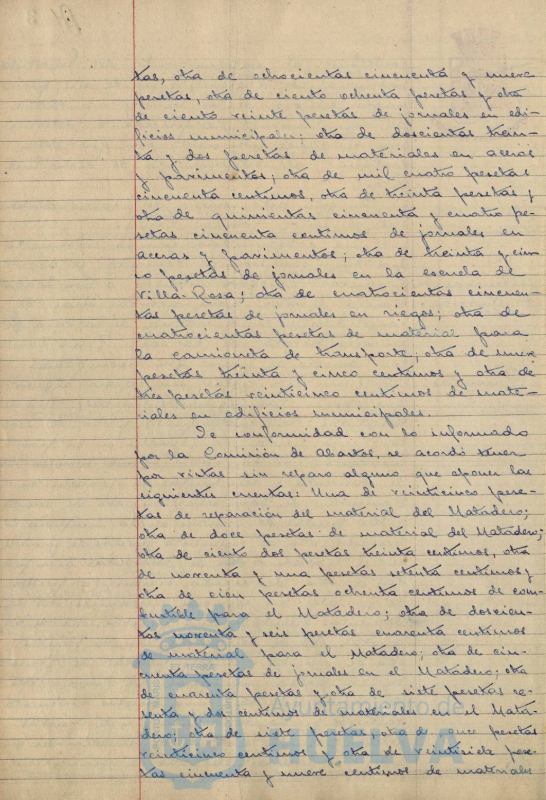 tas, otra de ochocientas cincuenta y nueve
pesetas, otra de ciento ochenta pesetas y otra
de ciento veinte pesetas de jornales en edi-
ficios municipales; otra de doscientas trein-
ta y dos pesetas de materiales en aceras
y pavimentos; otra de mil cuatro pesetas
cincuenta centimos, otra de treinta pesetas y
otra de quinientas cincuenta y cuatro pe-
setas cincuenta centimos de jornales en
aceras y pavimentos; otra de treinta y cin-
co pesetas de jornales en la escuela de
Villa Rosa; otra de cuatrocientas cincuen-
tas pesetas de jornales en riegos; otra de
cuatrocientas pesetas de material para
la camioneta de transporte; otra de nueve
pesetas treinta y cinco centimos y otra de
tres pesetas veinticinco centimos de mate-
riales en edificios municipales.
De conformidad con lo informado
por la Comisión de Abastos, se acordó tener
por vistas sin reparo alguno que oponer las
siguientes cuentas: Una de veinticinco pese-
tas de reparación del material del Matadero;
otra de doce pesetas de material del Matadero;
otra de ciento dos pesetas treinta centimos, otra
de noventa y una pesetas setenta centimos y
otra de cien pesetas ochenta centimos de com-
bustible para el Matadero; otra de doscien-
tas noventa y seis pesetas cuarenta centimos
de material para el Matadero; otra de cin-
cuenta pesetas de jornales en el Matadero; otra
de cuarenta pesetas y otra de siete pesetas se-
senta y dos centimos de materiales en el Mata-
dero; otra de siete pesetas, otra de once pesetas
veinticinco centimos y otra de veintisiete pese-
tas cincuenta y nueve centimos de materiales
Ayuntamiento de
HUELVA